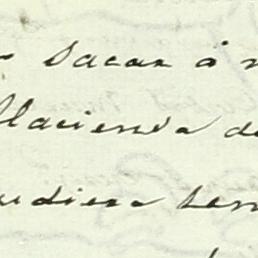 sacar á
Hacienda de
udiese ten